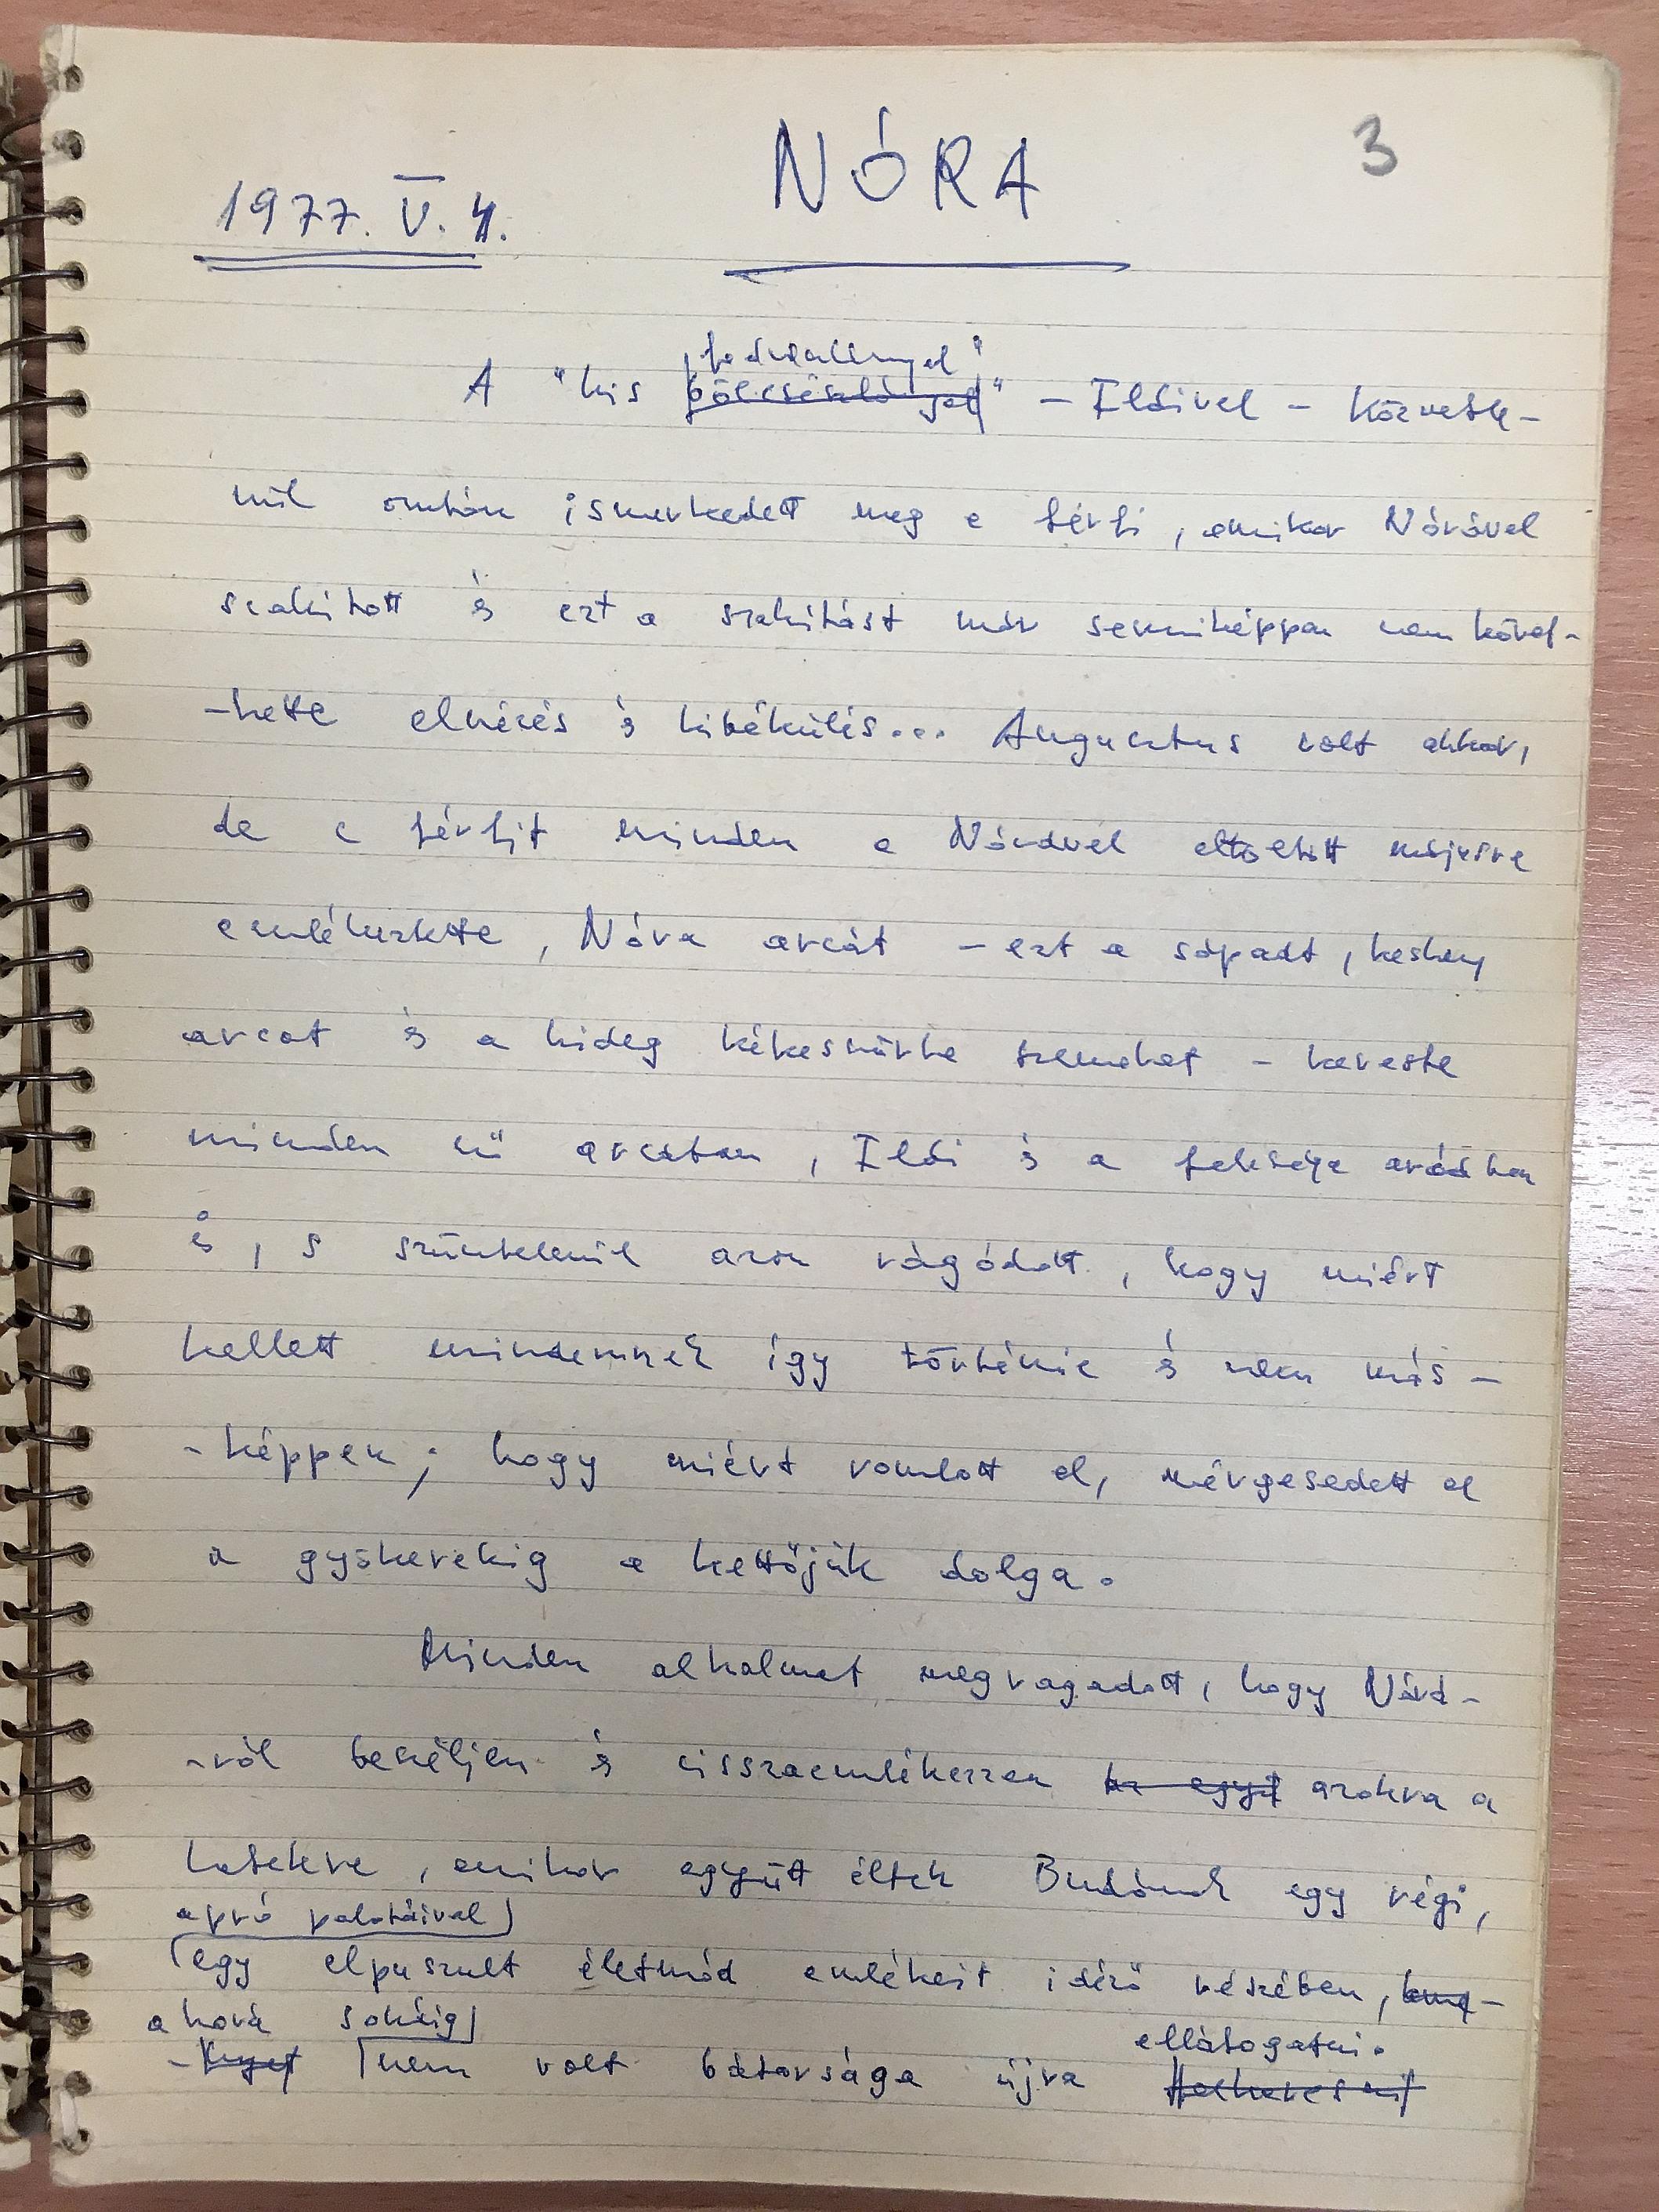 3
NÓRA
1977. V. 4.
A "kis bölcsészlánnyal" – Ildivel – közvetle-
nül azután ismerkedett meg a férfi, amikor Nórával
szakított és ezt a szakítást már semmiképpen nem követ-
-hette elnézés és kibékülés... Augusztus volt akkor,
de a férfit minden a Nórával eltöltött májusra
emlékeztette, Nóra arcát – ezt a sápadt, keskeny
arcot és a hideg kékesszürke szemeket – kereste
minden nő arcában, Ildi és a felesége arcában
is, s szüntelenül azon rágódott, hogy miért
kellett mindennek így történnie és nem más-
-képpen; hogy miért romlott el, mérgesedett el
a gyökerekig a kettőjük dolga.
Minden alkalmat megragadott, hogy Nórá-
-ról beszéljen és visszaemlékezzen az egyi azokra a
hetekre, amikor együtt éltek Budának egy régi,
apró palotáival
egy elpusztult életmód emlékeit idéző részében,
ahová sokáig
nem volt bátorsága újra
ellátogatni.